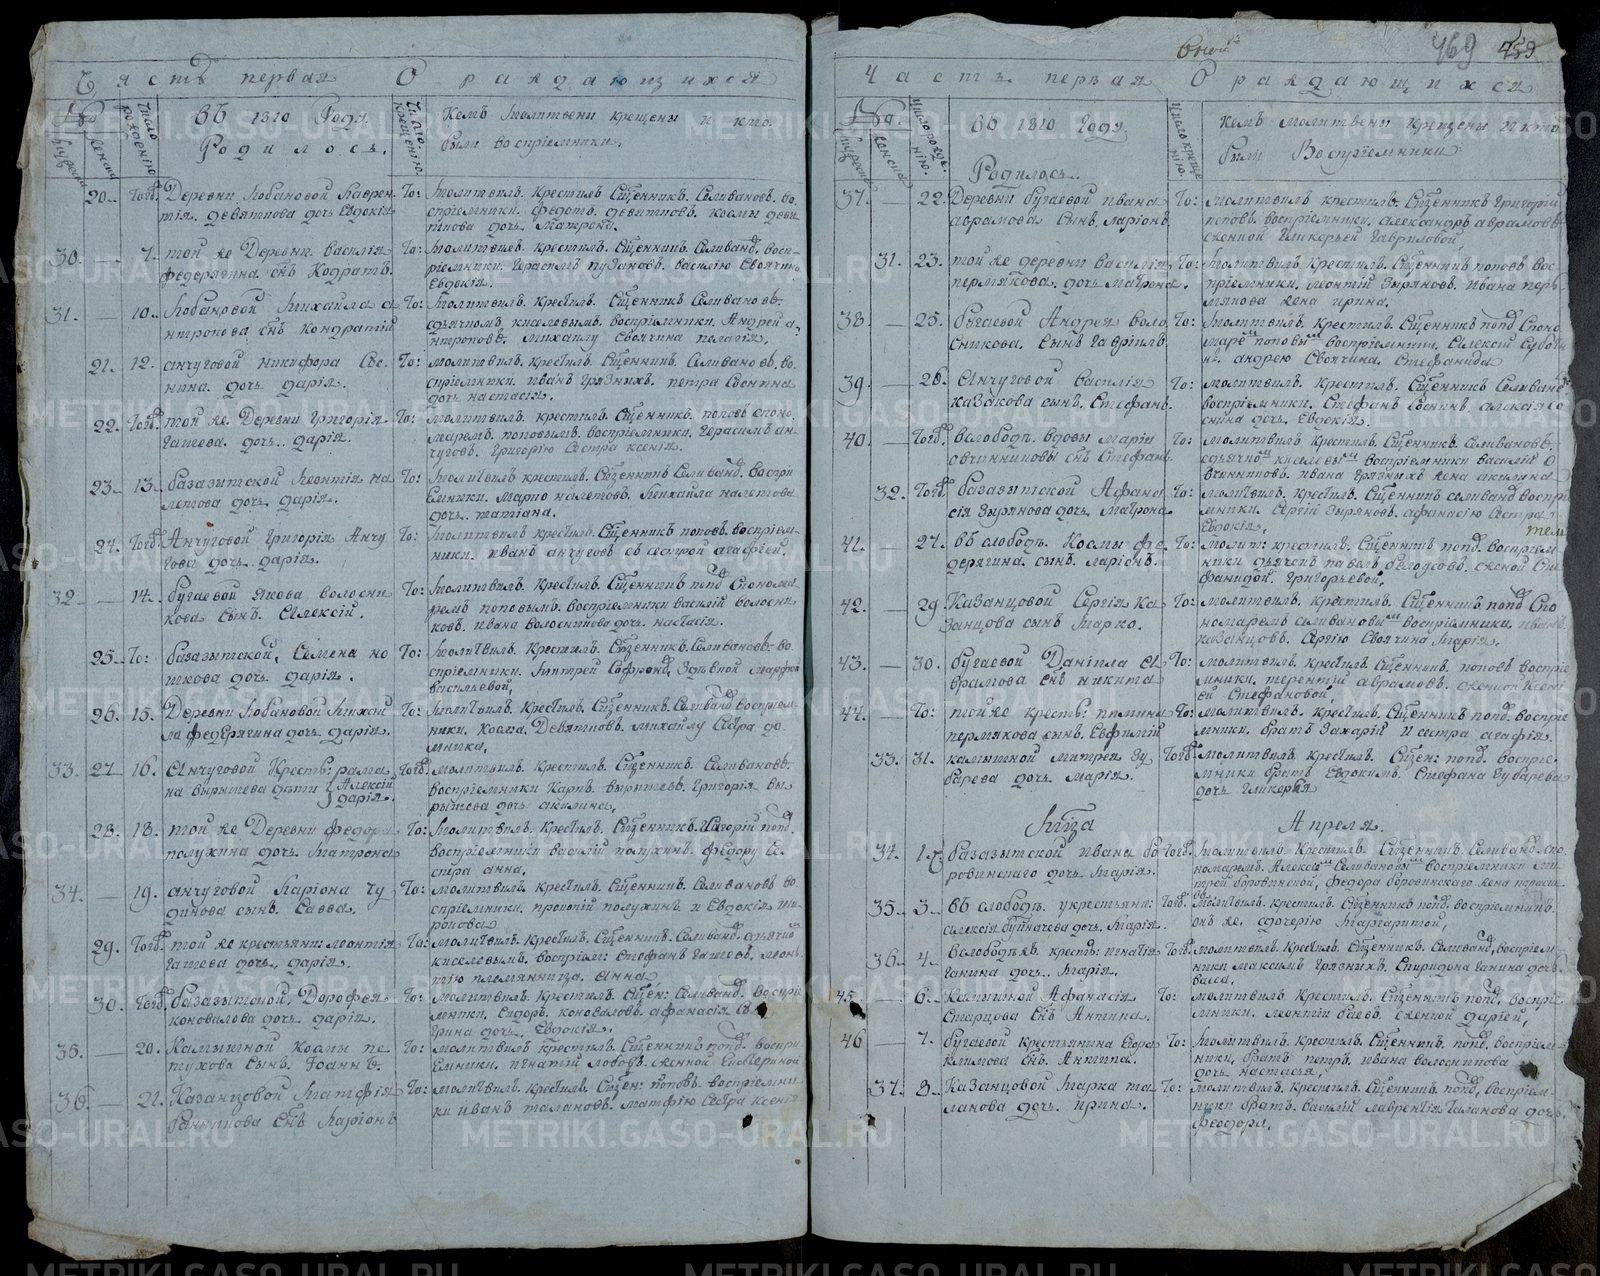 Часть первая О раждающихся
въ 1810 Году
Родилось.
Кемъ молитвены крещены и кто
были воспріемники.
20. Тогд. Деревни Лобановой Лаврен
тія девяткова дочь Евдокія
То: молитвилъ. крестилъ. Сщенникъ. Селивановъ. во
спріемники. федотъ. девятковъ. космы девя
ткова дочь Матрона.
30. — 7. той же Деревни. василія
федерягина. снъ Кодратъ.
То: молитвилъ. крестилъ. Сщенникъ. Селиванд. восп
ріемники. Герасимъ пузановъ. василію Своячина
Евдокія.
31. — 10. Лобановой Михайла а
нтропова снъ Кондратій
То: молитвилъ. крестилъ. Сщенникъ Селивановъ.
воспріемники. Андрей а
нтроповъ. михаилу Своячина пелагія.
21. 12. анчуговой никифора Сво
нина. дочь дарія.
То: молитвилъ. крестилъ. Сщенникъ. Селивановъ. во
спріемники. иванъ Грязныхъ. петра
дочь настасія.
22. Тогд. той же Деревни Григорія
Гашева. дочь. дарія.
То: молитвилъ. крестилъ. Сщенникъ. поповъ споно
маремъ. поповымъ. воспріемники. Герасимъ ан
чуговъ. Григорію Сестра ксенія.
23. 13. базазытской Леонтія на
летова дочь дарія.
То: молитвилъ крестилъ. Сщенникъ Селиванд. воспри
Емники. марко налетовъ. михайла налетова
дочь. татіана.
24. Тогд. Анчуговой Григорія Анчу
гова дочь. дарія.
То: молитвилъ крестилъ. Сщенникъ поповъ. воспріем
ники. иванъ анчуговъ съ сестрой агафіей.
32 — 14. бугаевой якова волосни
кова Сынъ. Алексій.
То: молитвилъ. крестилъ. Сщенникъ попд Спонома
ремъ поповымъ. воспріемники василій волосни
ковъ. ивана Волосникова дочь. настасія.
25. То: базазытской, Семена но
викова дочь дарія.
То: молитвилъ. крестилъ. Сщенникъ. Селивановъ. во
спріемники. Митрей Софронд. Здѣвкой марфой
васильевой.
26. 15. Деревни Лобановой Михай
ла федерягина дочь дарія.
То: молитвилъ. крестилъ. Сщенникъ. Селиванд воспріем
ники. косма. Девятковъ. михаилу Сестра до
мника.
33. 27 16. Анчуговой Крестьі: рома
на вырышева дѣти Алексій
дарія.
Тогд. молитвилъ. крестилъ. Сщенникъ. Селивановъ.
воспріемники Карпъ. вырышевъ. Григорія вы
рышева дочь акилина.
28. 18. той же Деревни федора
полухина дочь. матрона
То: молитвилъ. крестилъ. Сщенникъ. Григорій попд.
воспріемники василій полухинъ. федору Се
стра анна.
34. — 19. анчуговой Ларіона чу
динова сынъ. Савва.
То: молитвилъ. крестилъ. Сщенникъ. Селивановъ во
спріемники. прокопій полухинъ. и Евдокія ши
ронова.
29. Тогд. той же крестьяни: леонтія
Гашева дочь, дарія.
То: молитвилъ. крестилъ. Сщенникъ. Селиванд.
киселевымъ. воспріем: Стефанъ Гашевъ. леон
тію племянница. Анна.
30. Тогд. базазытской, Дорофея
коновалова дочь дарія.
То: молитвилъ. крестилъ. Сщен: Селиванд. воспри
Емники. Сидоръ. коноваловъ. афанасія
дочь. Евдокія.
35. — 20. Камышной космы пе
тухова сынъ. Іоаннъ.
То: молитвилъ крестилъ. Сщенникъ попд. воспри
Емники. игнатій лобовъ. сженой Екатериной
36. — 21. Казанцовой Матфія
снъ Ларіонъ
То: молитвилъ. крестилъ. Сщен: поповъ. воспріемни
ки иванъ талановъ. матфію Сестра ксенія
469
Часть первая О раждающихся
въ 1810 Году
Родилось.
кемъ молитвены крещены и кто
были Воспріемники
37. — 22. Деревни бугаевой ивана
аврамова Сынъ, ларіонъ.
То: молитвилъ крестилъ. Сщенникъ Григорій
поповъ. воспріемники. александръ аврамовъ.
сженой Гликерьей Гавриловой.
31. 23. той же деревни василія
пермякова. дочь матрона.
То: молитвилъ. крестилъ. Сщенникъ поповъ вос
пріемники. леонтій Зыряновъ. ивана пер
мякова жена ирина.
38. — 25. бугаевой Андрея воло
сникова. Сынъ Гавріилъ.
То: молитвилъ. крестилъ. Сщенникъ попд Споно
маремъ поповымъ воспріемники. Алексій
андрею Своячина. Стефанида
39. — 26. Анчуговой василія
казакова сынъ. Стефанъ.
То: молитвилъ. крестилъ. Сщенникъ Селиванд
воспріемники. Стефанъ Соснинъ. алексія Со
снина дочь. Евдокія.
40. — Тогд. вслободѣ вдовы маріи
овчинниковы снъ Стефанъ
То: молитвилъ крестилъ. Сщенникъ. Селивановъ.
воспріемники василій О
вчинниковъ. ивана Грязныхъ жена акилина
32. Тогд. базазытской Афана
сія Зырянова дочь. Матрона
То: молитвилъ. крестилъ. Сщенникъ селиванд воспрі
мники. Сергій Зыряновъ. афанасію Сестра
Евдокія.
41. — 27. въ слободѣ. Космы фе
дерягина. сынъ. ларіонъ.
То: молит: крестилъ. Сщенникъ попд. воспріем
ники дьячекъ павелъ сженой Сте
фанидой. Григорьевой.
42. — 29. Казанцовой Сергія Ка
занцова сынъ марко.
То: молитвилъ. крестилъ. Сщенникъ попд Спо
номаремъ селивановымъ воспріемники. иванъ
казанцовъ. Сергію Своячина марія.
43. — 30. бугаевой Даніила А
врамова снъ никита
То: молитвилъ. крестилъ. Сщенникъ поповъ воспріе
мники. терентій аврамовъ. сженой Ксені
ей Стефановой
44. — То: той же кресть: пимина
пермякова сынъ. Евфимій
То: молитвилъ. крестилъ. Сщенникъ попд. воспріе
мники. братъ Захарій и сестра агафія.
33. 31. камышной митрея Зу
барева дочь марія.
Тогд. молитвилъ. крестилъ. Сщен: попд. воспріе
мники братъ Евдокимъ. Стефана Зубарева
дочь гликерія
Мца Апреля.
34. 1. базазытской ивана бо
ровинскаго дочь марія.
Тогд. молитвилъ. крестилъ. Сщенникъ. Селиванд. спо
номаремъ. Алексѣемъ Селивановымъ воспріемники ми
трей боровинской, федора боровинскаго жена
35. 3. въ слободѣ. укрестьяни:
алексія дочь. марія.
Тогд. молитвилъ. крестилъ. Сщенникъ попд. воспріемникъ.
онъ же. сдочерію маргаритой.
36. 4. вслободѣ. кресть: игнатія
Ганина дочь. марія.
Тогд. молитвилъ. крестилъ. Сщенникъ. Селиванд, воспріем
ники максимъ грязныхъ. Спиридона ганина дочь.
васса.
45. — 6. Камышной Афанасія
Старцова снъ Антипа.
То: молитвилъ крестилъ. Сщенникъ попд. воспріе
мники. леонтій баевъ. сженой дарьей.
46 — 7. бугаевой крестьянина Евдо
кимова снъ. Антипа.
То: молитвилъ. крестилъ. Сщенникъ. попд, воспріем
ники, братъ петръ. ивана волосникова
дочь настасья.
37. 8. Казанцовой марка та
ланова дочь. ирина.
То: молитвилъ крестилъ. Сщенникъ попд, воспріем
ники братъ. василій лаврентія Таланова дочь
феодора.
METRIKI.GASO-URAL.RU